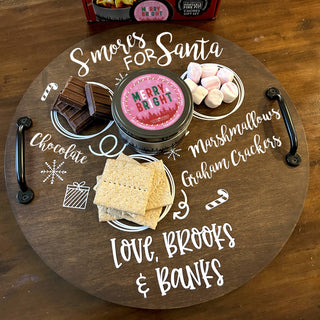 MERRY
BRIGHT
S'mores
FOR Santa
MERRY
BRIGHT
Chocolate
Marshmallows
Graham Crackers
LOVE, BROOKS
& BANKS